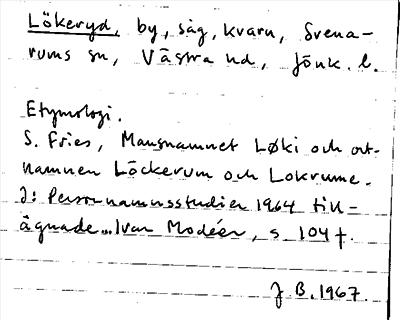 Lökeryd, by, såg, kvarn, Svena-
rums sn, Västra hd, Jönk. l.
Etymologi.
S. Fries, Mansnamnet Løki och ort-
namnen Läckerum och Lokrume.
I: Personnamnsstudier 1964 till-
ägnade... Ivar Modéer, s. 104 f.
J B. 1967.